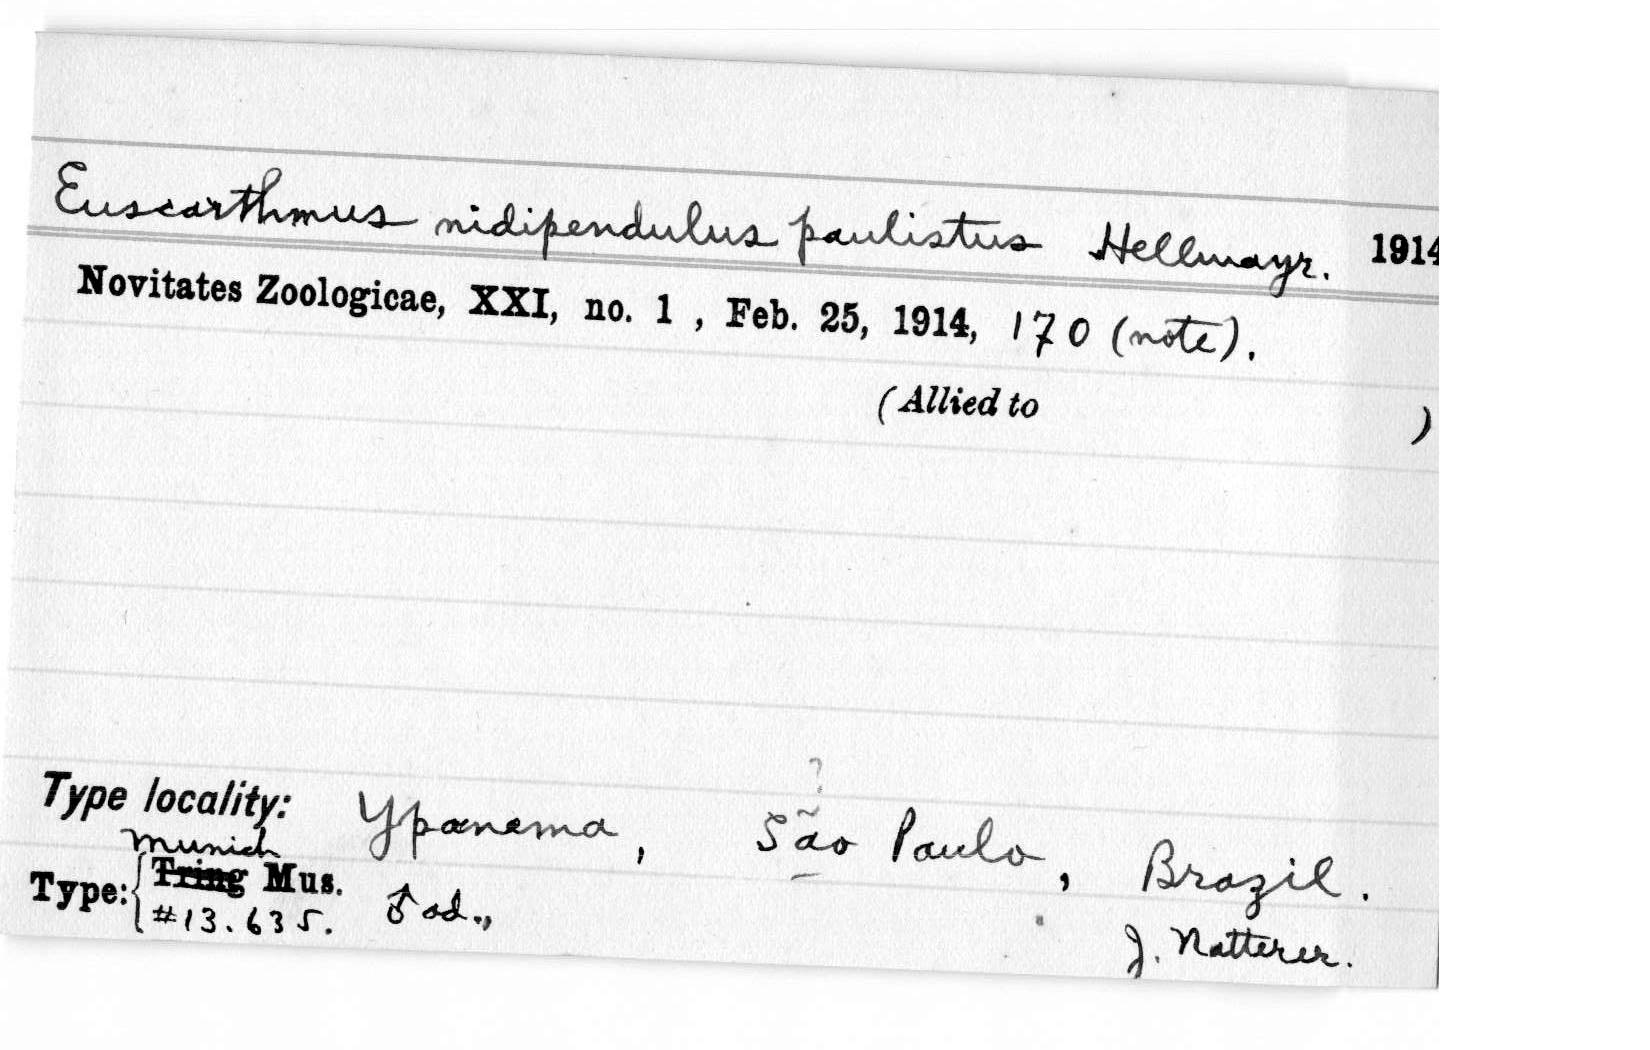 Euscarthmus nidipendulus paulistus Hellmayr. 1914
Novitates Zoologicae, XXI, no. 1, Feb. 25, 1914, 170 (note).
(Allied to )
?
Type locality: Ypanema, São Paulo, Brazil.
Munich
Type: { Tring Mus. ♂ ad.,
#13.635.
J. Natterer.